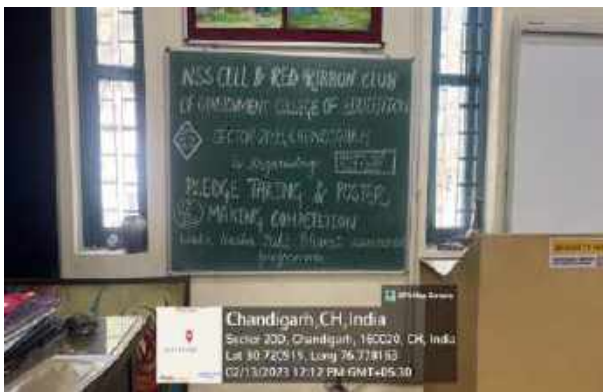 NSS CELL & RED RIBBON CLUB
OF GOVERNMENT COLLEGE OF EDUCATION
SECTOR 20D, CHANDIGARH
is organising
PLEDGE TAKING & POSTER
MAKING COMPETITION
under Nasha Mukt Bharat awareness
programme
GPS Map Camera
Chandigarh, CH, India
Sector 20D, Chandigarh, 160020, CH, India
Lat 30.720915, Long 76.778163
02/13/2023 12:12 PM GMT+05:30